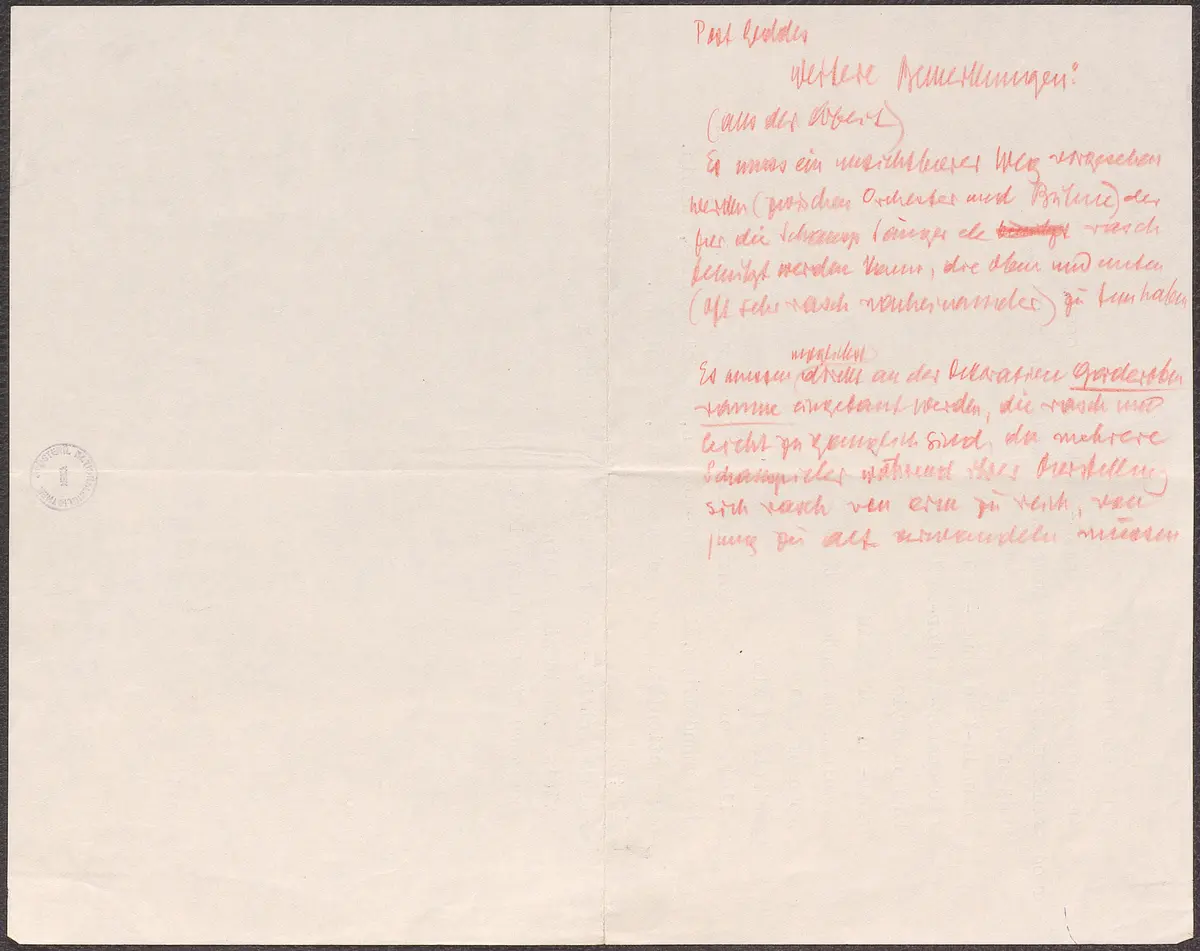 Post Geddes
Weitere Bemerkungen:
(aus der Arbeit)
Es muss ein unsichtbarer Weg vorgesehen
werden (zwischen Orchester und Bühne) der
fuer die Schausp Sänger etc rasch
benützt werden kann, die oben und unten
(oft sehr rasch nacheinander) zu tun haben
möglichst
Es muessen direkt an der Dekoration Garderoben
raume eingebaut werden, die rasch und
leicht zugänglich sind, da mehrere
Schauspieler während ihrer Darstellung
sich rasch von arm zu reich, von
jung zu alt verwandeln müssen